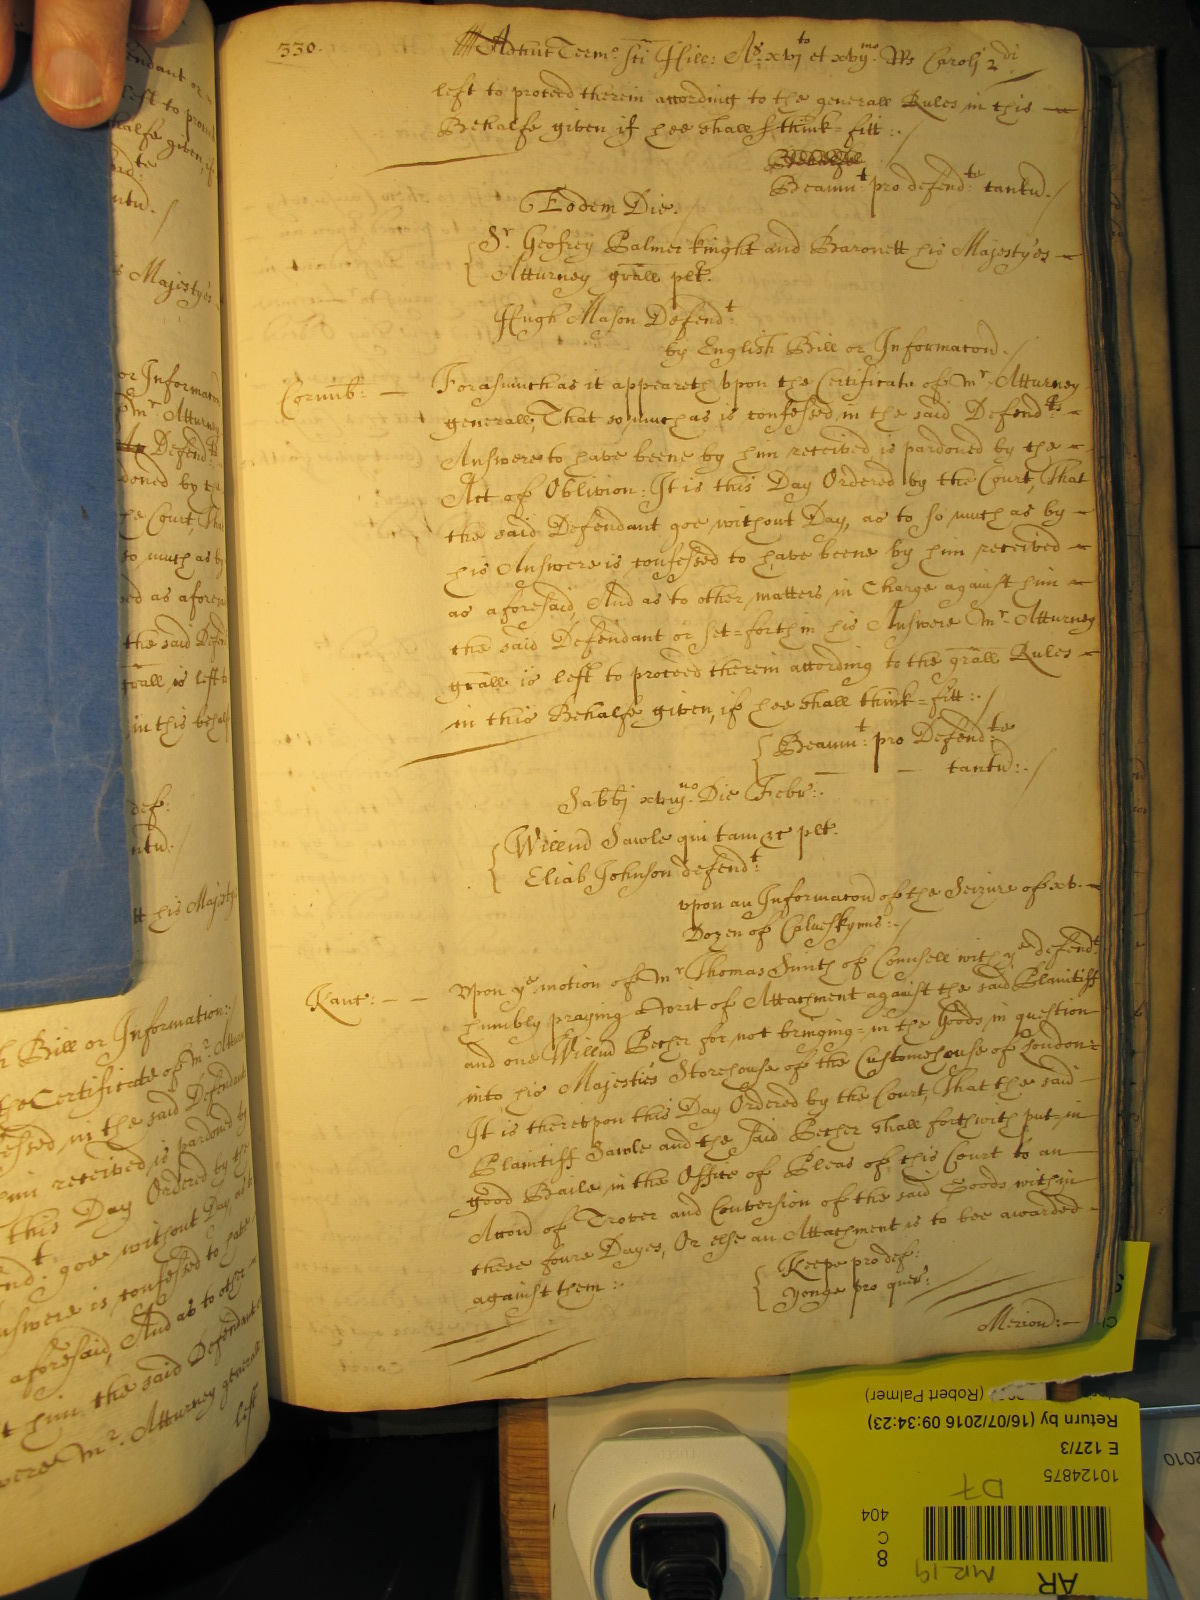 330.
Adhuc Termo. Sti Hill: Ao. xvjto et xvijmo. Rs Caroli 2di
left to proceed therein according to the generall Rules in this
Behalfe given if hee shall think=fitt:./
Beaumt: pro defendte: tantu./
Eodem Die.
Sr. Geofrey Palmer knight and Baronett his Majestyes
Atturney grall plt.
Hugh Mason Defendt:
by English Bill or Informacon./
Cornub: — Forasmuch as it appeareth vpon the Certificate of Mr. Atturney
generall, That so much as is confessed in the said Defendts:
Answere to have beene by him received is pardoned by the
Act of Oblivion: It is this Day Ordered by the Court, That
the said Defendant goe without Day, as to so much as by
his Answere is confessed to have beene by him received
as aforesaid, And as to other matters in Charge against him
the said Defendant or set=forth in his Answere Mr. Atturney
grall is left to proceed therein according to the grall Rules
in this Behalfe given, if hee shall think=fitt:./
Beaumt: pro Defendte:
— tantu:./
Sabbi xviijno. Die Febr:.
Willm Sawle qui tam &c plt.
Eliab Johnson defendt:
vpon an Informacon of the Seizure of xv.
Dozen of Calueskynns:./
Kant: — — Vpon ye. motion of Mr Thomas Smith of Counsell with ye defendt:
humbly praying a writ of Attachment against the said Plaintiff
and one Willm Becher for not bringing=in the Goods in question
into his Majesties Storehouse of the Customehouse of London:
It is therevpon this Day Ordered by the Court, That the said
Plaintiff Sawle and the said Becher shall forthwith put=in
good Baile in the Office of Pleas of this Court to an
Accon of Trover and Conversion of the said Goods within
these foure Dayes, Or else an Attachment is to bee awarded
against them:.
Keepe pro def:
Yonge pro quer:
Meriou:
endant or
left to proceed
halfe given, if
ntu./
s Majestyes
or Informacon
Mr. Atturney
Defendts:
doned by the
he Court, That
so much as by
ed as aforesaid
the said Defen
grall is left to
in this behalfe
def:
ntu:./
tt his Majesty
h Bill or Information:.
the Certificate of Mr. Attur
essed in the said Defendant
him received is pardoned by
this Day Ordered by the
end t: goe without Day, as t
nswere is confessed to have
aforesaid, And as to other
t him the said Defendant
were Mr. Atturney generall
left
(Robert Palmer)
Return by (16/07/2016 09:34:23)
E 127/3
10124875
D7
404
C
8
MR19
AR
2010